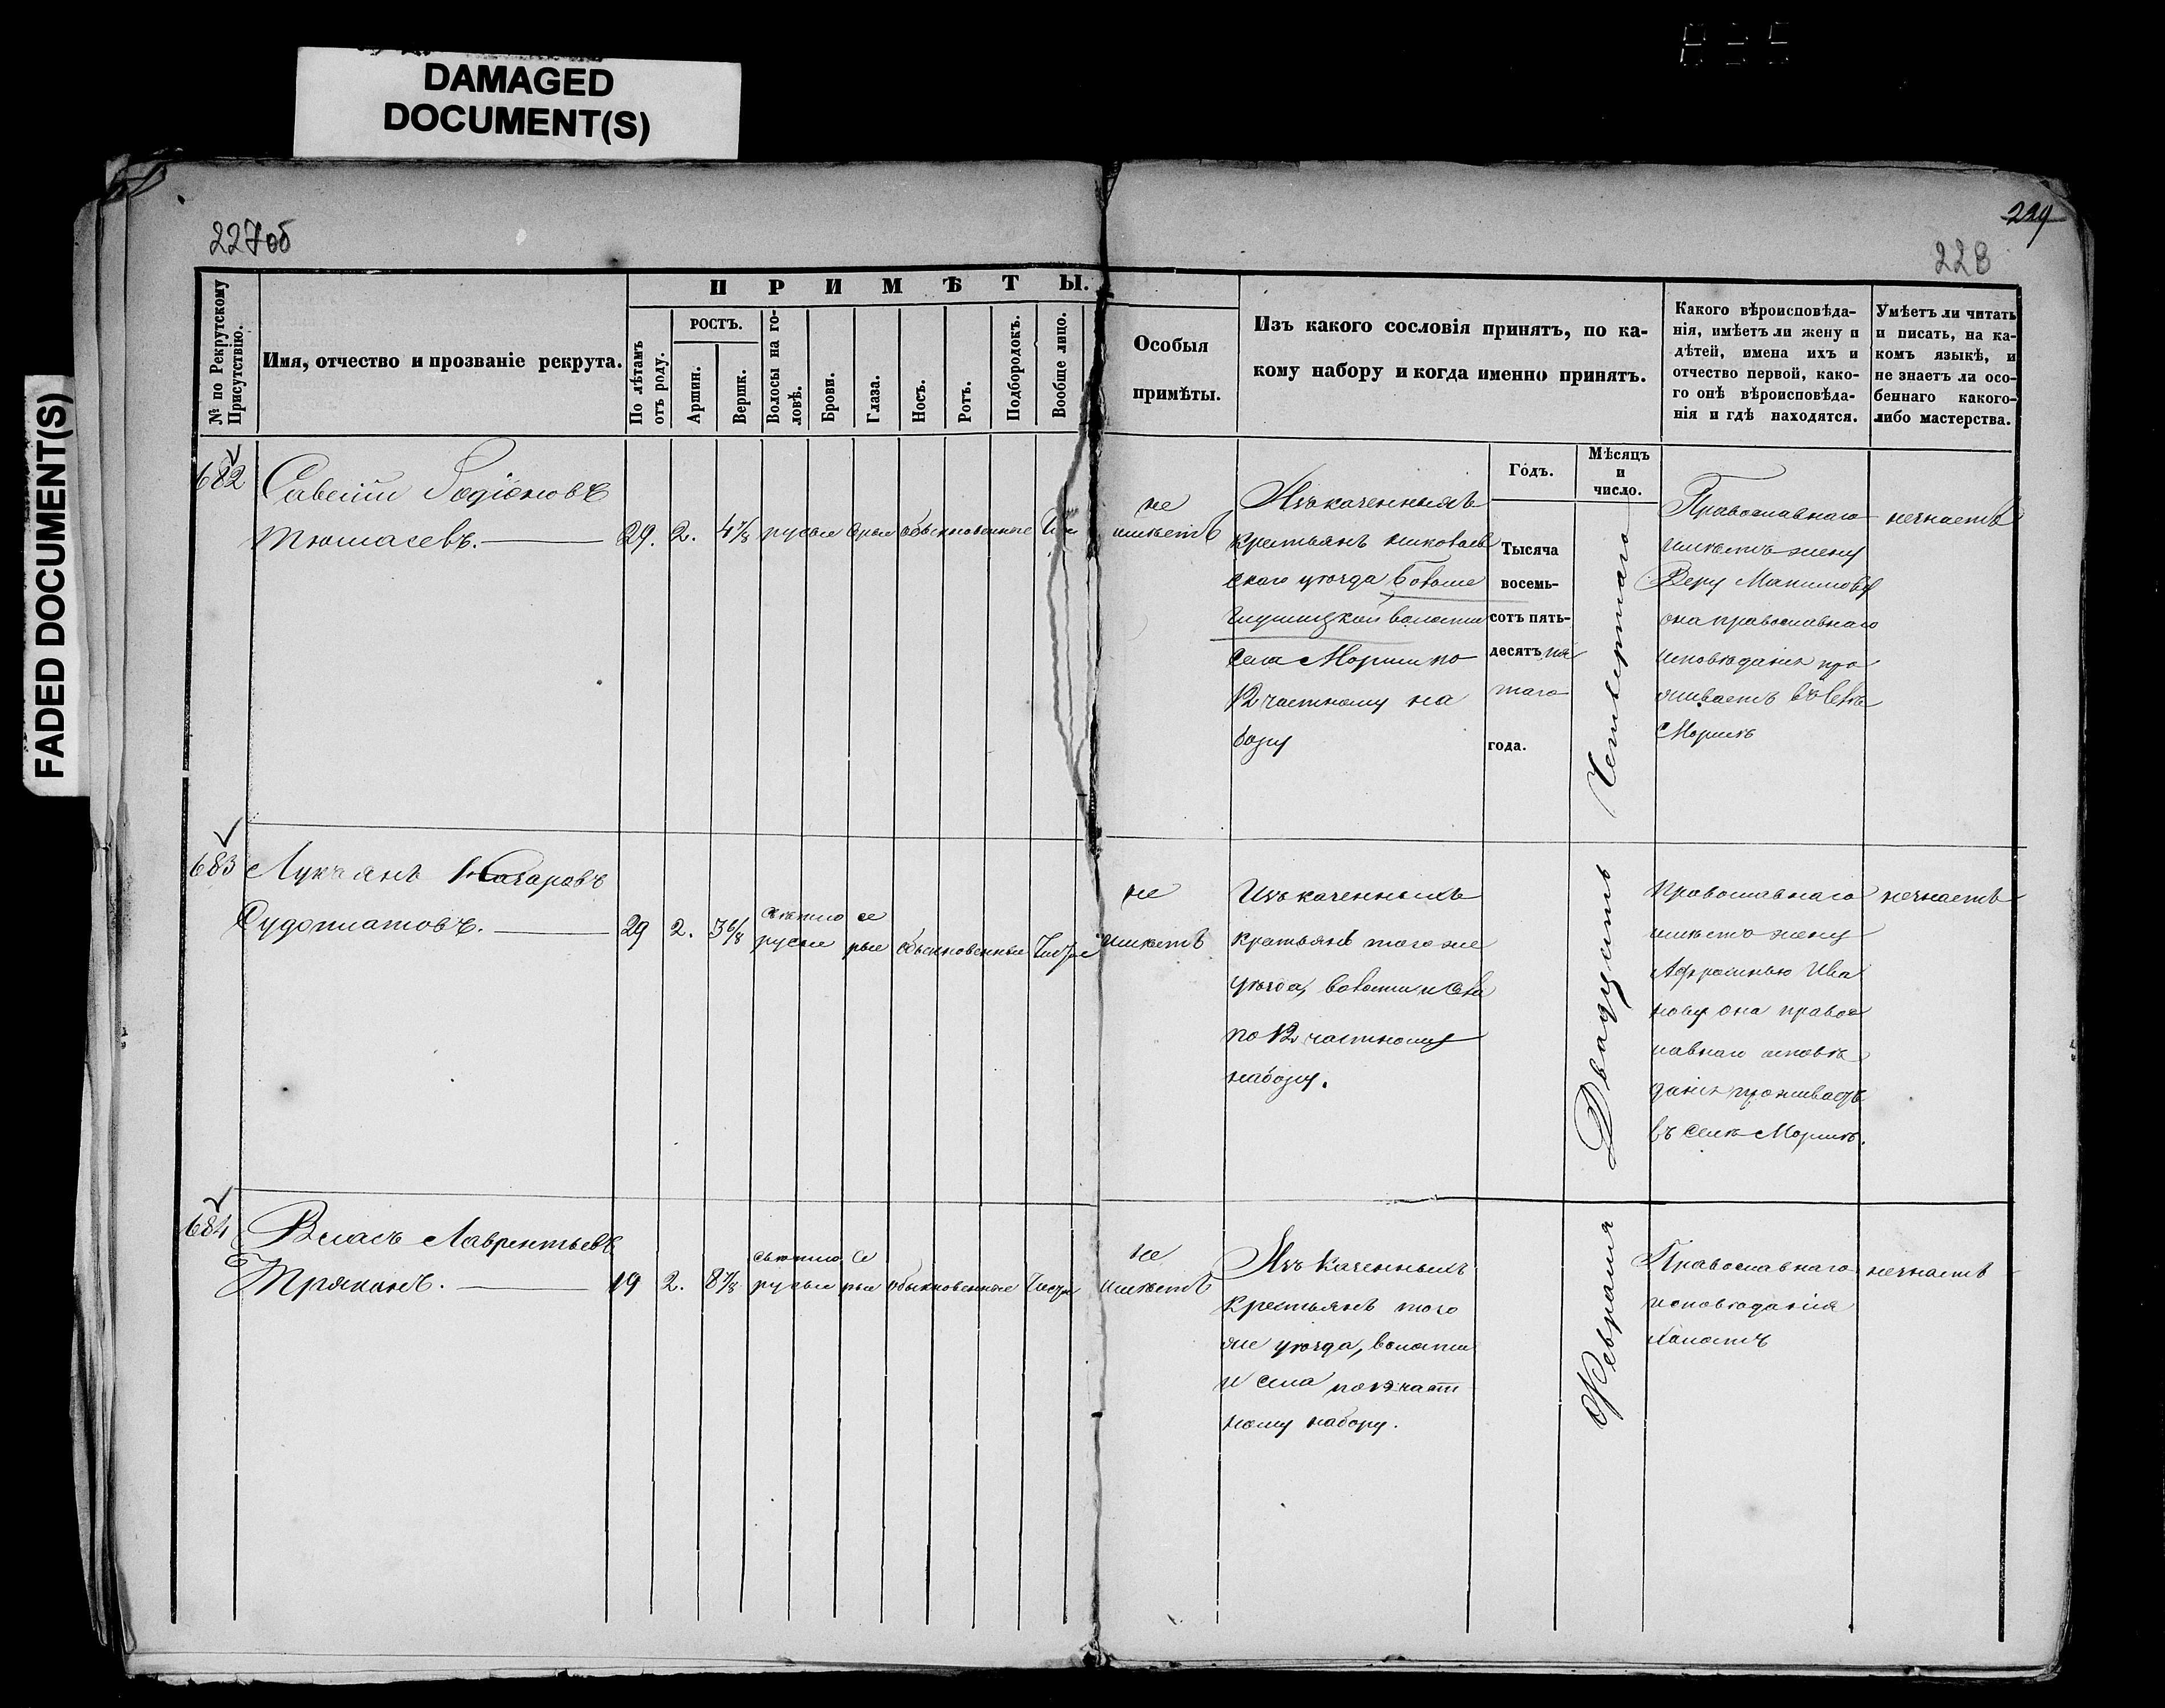 DAMAGED
DOCUMENT(S)
FADED DOCUMENT(S)
227об
229
228
П Р И М Ѣ Т Ы.
№ по Рекрутскому Присутствію.
Имя, отчество и прозваніе рекрута.
По лѣтамъ отъ роду.
РОСТЪ.
Аршин.
Вершк.
Волосы на головѣ.
Брови.
Глаза.
Носъ.
Ротъ.
Подбородокъ.
Вообще лицо.
Особыя
примѣты.
Изъ какого сословія принятъ, по ка-
кому набору и когда именно принятъ.
Какого вѣроисповѣда-
нія, имѣетъ ли жену и
дѣтей, имена ихъ и
отчество первой, како-
го онѣ вѣроисповѣда-
нія и гдѣ находятся.
Умѣетъ ли читать
и писать, на ка-
комъ языкѣ, и
не знаетъ ли осо-
беннаго какого-
либо мастерства.
Годъ.
Мѣсяцъ
и
число.
682
Савелій Родіоновъ
29. 2. 4⅞ русые обыкновенные
не
имѣетъ
Изъ казенныхъ
крестьянъ николаев
скаго уѣзда
волости
села Морши по
12 частному на
бору
Тысяча
восемь-
сотъ пять-
десятъ пя
таго
года.
Четвертаго
Православнаго
имѣетъ жену
Веру
она православнаго
исповѣданія про
живаетъ въ селѣ
Моршѣ
незнаетъ
683
Лукьянъ Захаровъ
Судоплатовъ.
29 2. 3 6/8 свѣтло русые се рые обыкновенные чистое
не
имѣетъ
Изъ казенныхъ
крестьянъ того же
уѣзда, волости и села
по 12 частному
набору.
Двадцать
Православнаго
имѣетъ жену
Афросинью Ива
нову она правос
лавнаго исповѣ
данія проживаетъ
въ селѣ Моршѣ.
незнаетъ
684
Власъ Лаврентьевъ
Трякинъ.
19 2. 8⅞ свѣтло русые се рые обыкновенные чистое
не
имѣетъ
Изъ Казенныхъ
Крестьянъ того
же уѣзда, волости
и села по 12 част
ному набору.
Февраля
Православнаго
исповѣданія
холостъ
незнаетъ